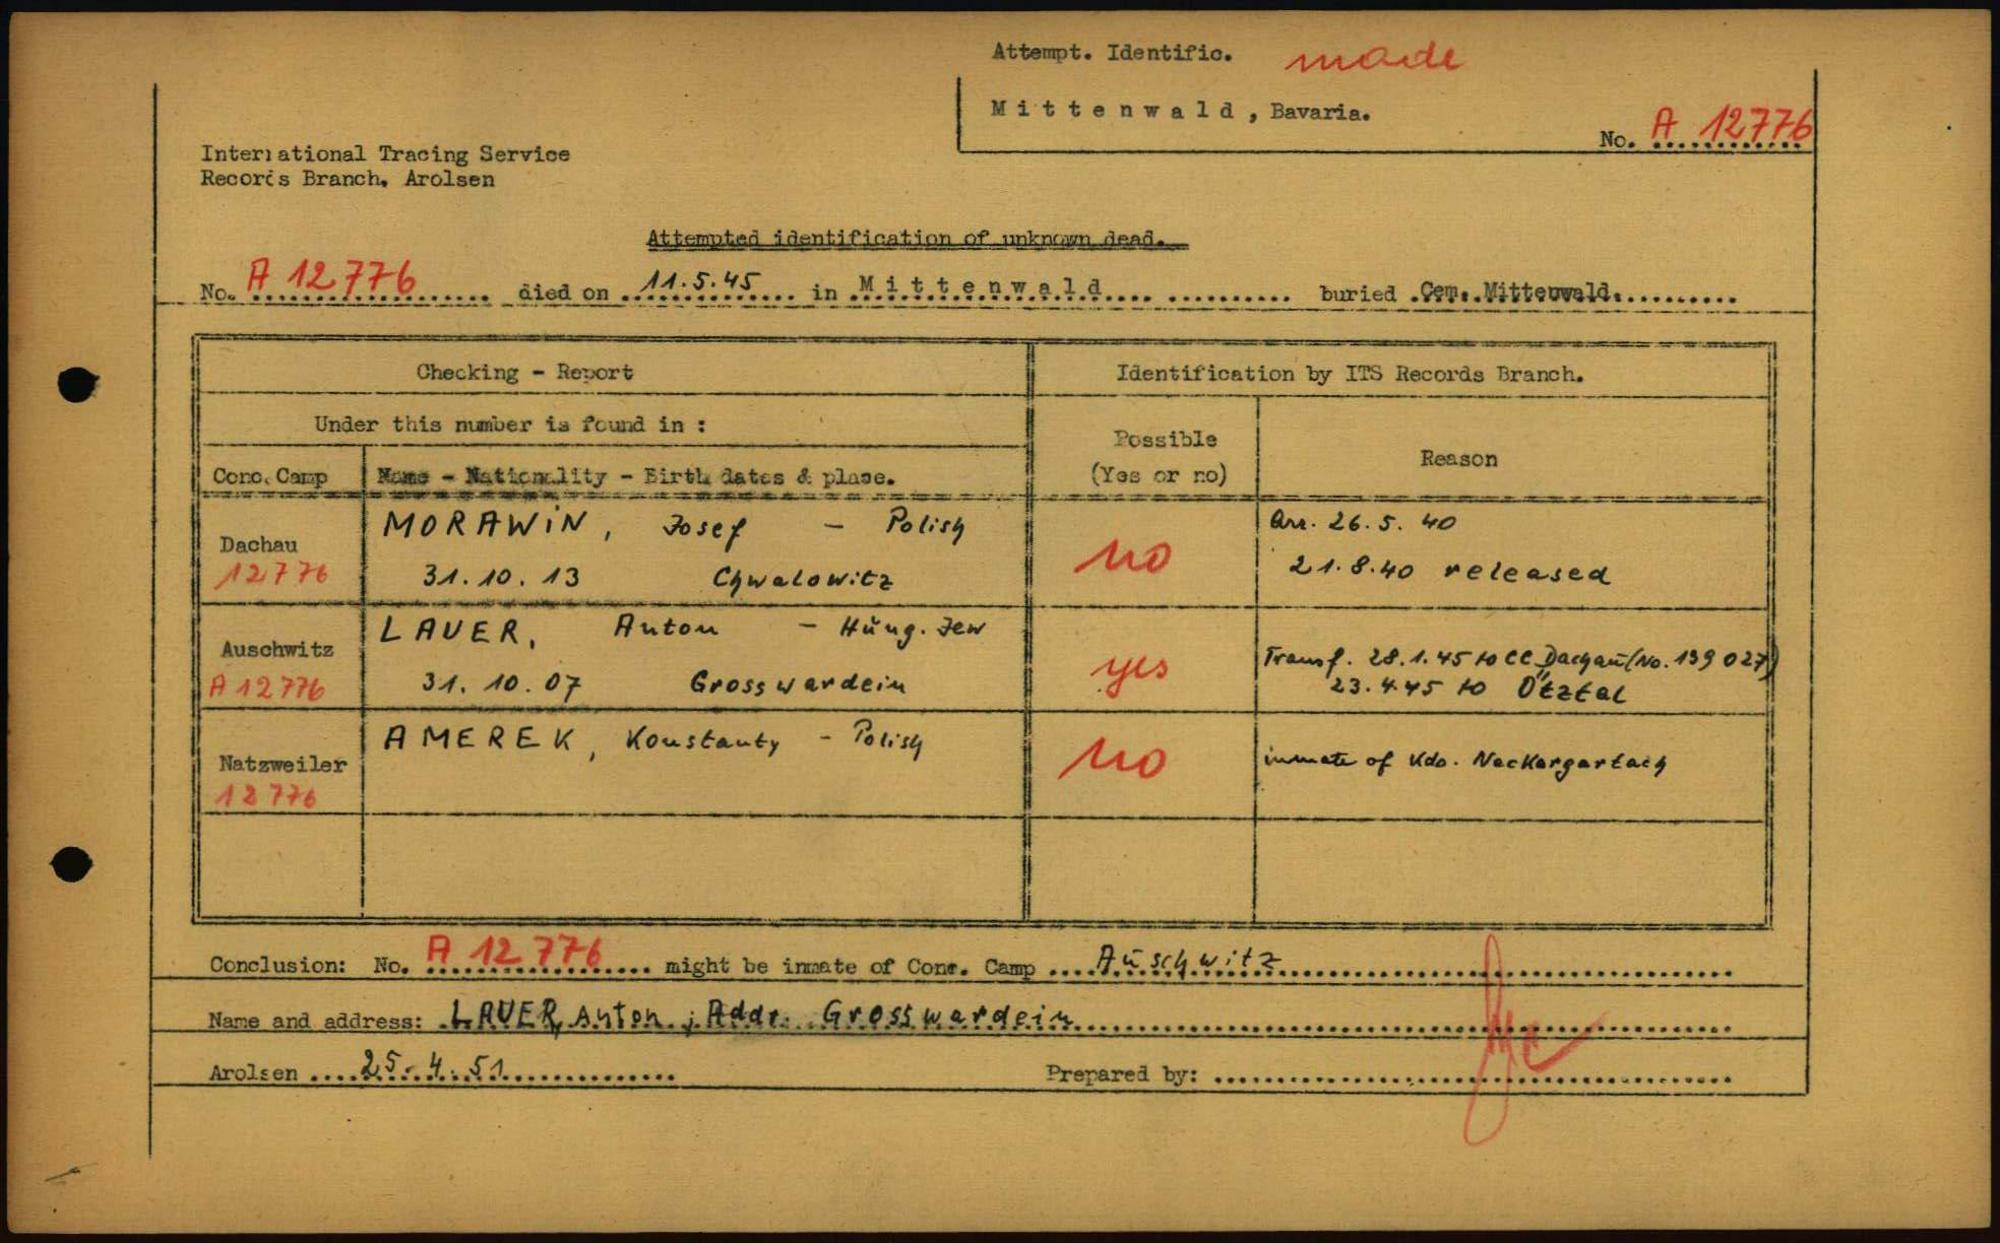 Attempt. Identific. made
Mittenwald, Bavaria.
No. A 12776
International Tracing Service
Records Branch, Arolsen
Attempted identification of unknown dead.
No. A 12776 died on 11.5.45 in Mittenwald buried Cem. Mittenwald.
Checking - Report
Identification by ITS Records Branch.
Under this number is found in :
Possible
(Yes or no)
Reason
Conc. Camp
Name - Nationality - Birth dates & place.
Dachau
12776
MORAWIN, Josef - Polish
31.10.13 Chwalowitz
no
Arr. 26.5.40
21.8.40 released
Auschwitz
A 12776
LAUER, Anton - Hung. Jew
31.10.07 Grosswardein
yes
Transf. 28.1.45 to CC Dachau (No. 139 027)
23.4.45 to Ötztal
Natzweiler
12776
AMEREK, Konstanty - Polish
no
inmate of Kdo. Neckargartach
Conclusion: No. A 12776 might be inmate of Conc. Camp Auschwitz
Name and address: LAUER, Anton ; Addr. Grosswardein
Arolsen 25.4.51
Prepared by: